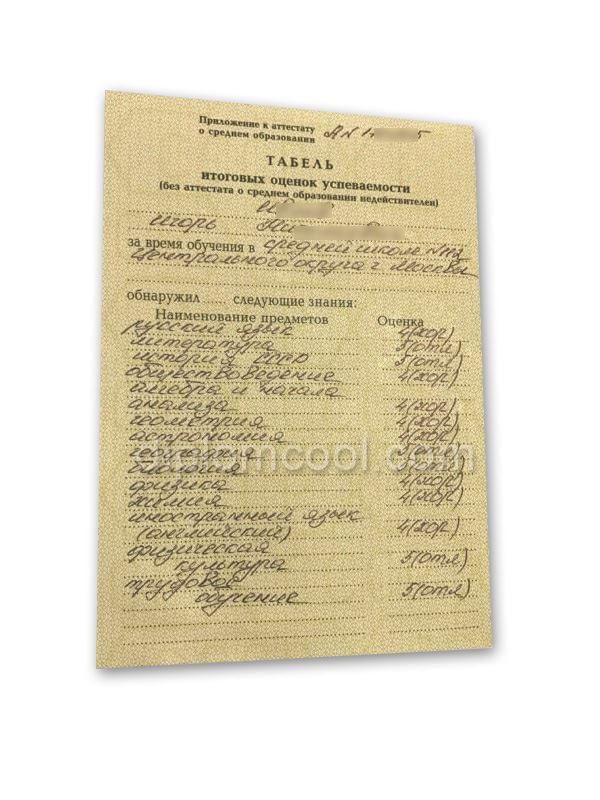 Приложение к аттестату
о среднем образовании
АN 1 5
ТАБЕЛЬ
итоговых оценок успеваемости
(без аттестата о среднем образовании недействителен)
Игорь
за время обучения в средней школе N112
Центрального округа г. Москвы
обнаружил ...... следующие знания:
Наименование предметов Оценка
русский язык 4(хор)
литература 5(отл)
история СССР 5(отл)
обществоведение 4(хор)
алгебра и начала
анализа 4(хор)
геометрия 4(хор)
астрономия 4(хор)
география
diplomcool.com
биология
физика 4(хор)
химия 4(хор)
иностранный язык
(английский) 4(хор)
физическая
культура 5(отл)
трудовое
обучение 5(отл)